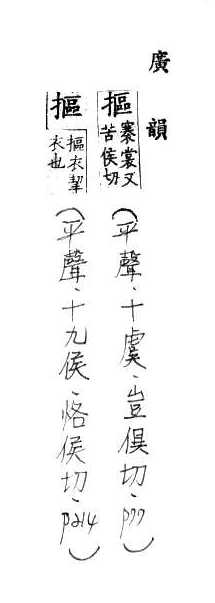 廣韻
摳 褰裳又苦侯切 (平聲、十虞、豈俱切、p77)
摳 摳衣挈衣也 (平聲、十九侯、恪侯切、p214)